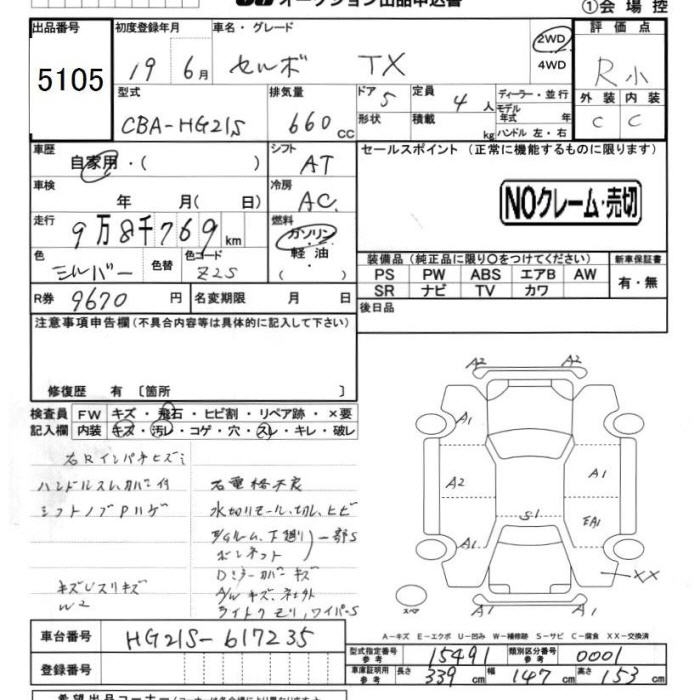 オークション出品申込書
①会場控
出品番号 初度登録年月 車名・グレード 評価点
5105 19 6月 セルボ TX 2WD 4WD R小
型式 排気量 ドア 定員 ディーラー・並行 外装 内装
CBA-HG21S 660cc 5 4人 モデル年式 年 C C
形状 積載 kg ハンドル 左・右
車歴 シフト セールスポイント (正常に機能するものに限ります)
自家用・( ) AT
車検 冷房
年 月( 日) AC
NOクレーム・売切
走行 燃料
9万8千769km ガソリン
色 色替 色コード 軽油
シルバー Z2S ( )
装備品(純正品に限り○をつけてください) 新車保証書
PS PW ABS エアB AW 有・無
SR ナビ TV カワ
R券 9670円 名変期限 月 日
後日品
注意事項申告欄(不具合内容等は具体的に記入して下さい)
修復歴 有〔箇所 〕
検査員 FW キズ・飛石・ヒビ割・リペア跡・×要
記入欄 内装 キズ・汚レ・コゲ・穴・スレ・キレ・破レ
右Rインパネヒズミ
ハンドルスレ、カバー付 右電格不良
シフトノブPハゲ 水切りモール、切レ、ヒビ
下廻り 一部S
ボンネット
Dミラーカバーキズ
キズUスリキズ
W2
ライトクモリ、ワイパーS
A2 A2
A1
A2 A1
S1 EA1
A1 XX
スペア
A1 A1
A-キズ E-エクボ U-凹み W-補修跡 S-サビ C-腐食 XX-交換済
車台番号 HG21S-617235
型式指定番号 参考 15491 類別区分番号 参考 0001
登録番号
車庫証明用 参考 長さ 339cm 幅 147cm 高さ 153cm
希望出品コーナー